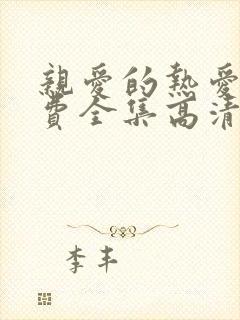 親愛的熱愛
費全集高清
李丰